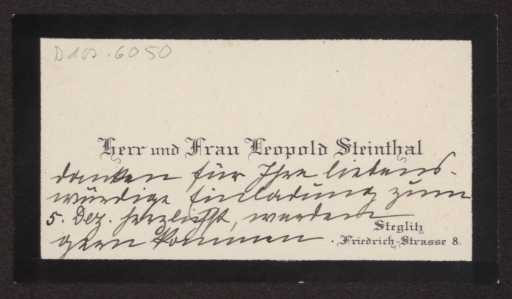 D 107.6050
Herr und Frau Leopold Steinthal
danken für Ihre liebens-
würdige Einladung zum
5. Dez. herzlichst, werden
gern kommen.
Steglitz
Friedrich-Strasse 8.